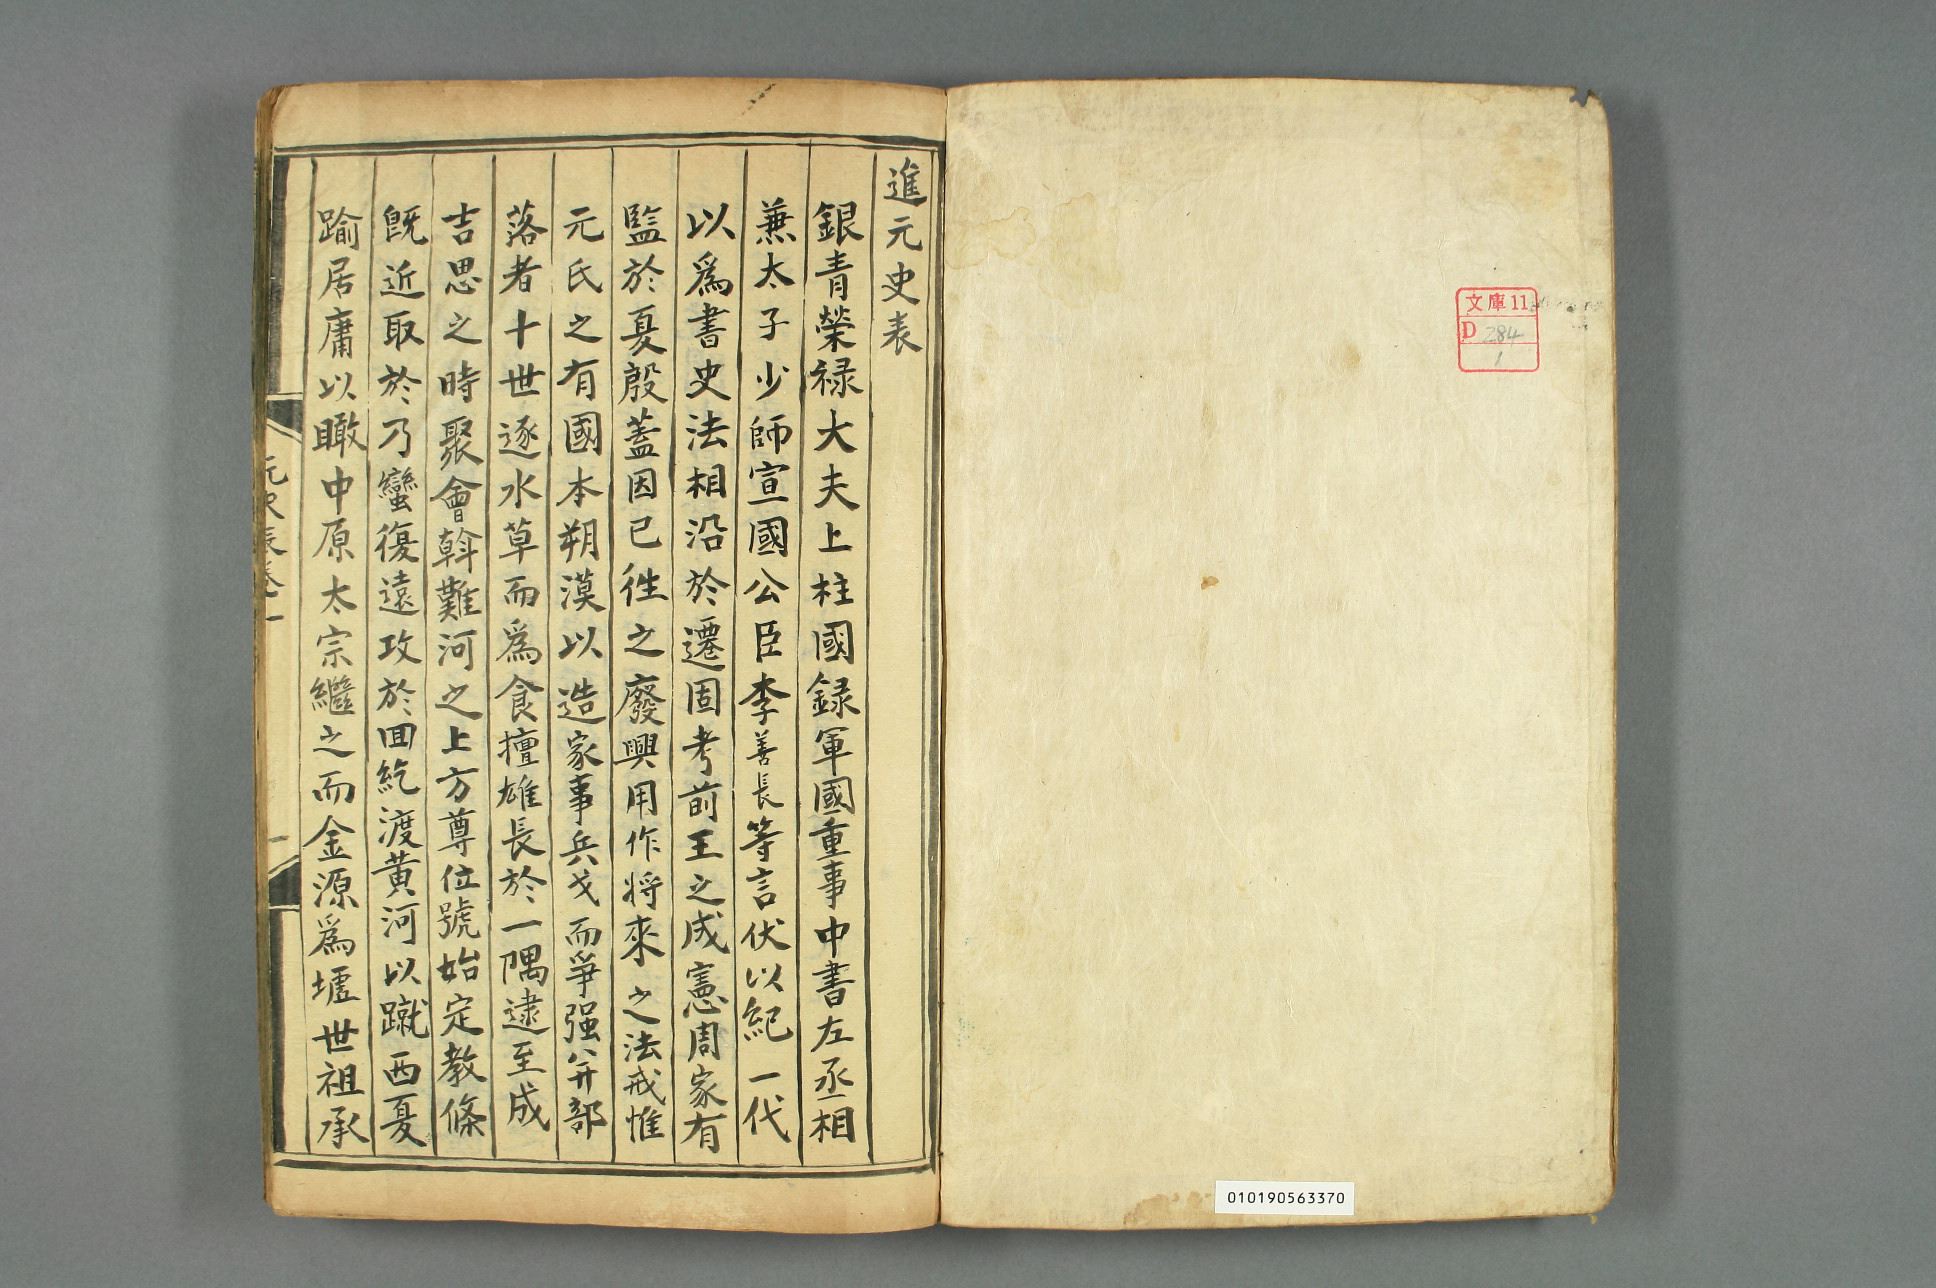 文庫11
D 284
1
010190563370
進元史表
銀青榮禄大夫上柱國録軍國重事中書左丞相
兼太子少師宣國公臣李善長等言伏以紀一代
以爲書史法相沿於遷固考前王之成憲周家有
監於夏殷蓋因已徃之廢興用作將來之法戒惟
元氏之有國本朔漠以造家事兵戈而爭强并部
落者十世逐水草而爲食擅雄長於一隅逮至成
吉思之時聚會斡難河之上方尊位號始定教條
旣近取於乃蠻復遠攻於囬紇渡黄河以蹴西夏
踰居庸以瞰中原太宗繼之而金源爲墟世祖承